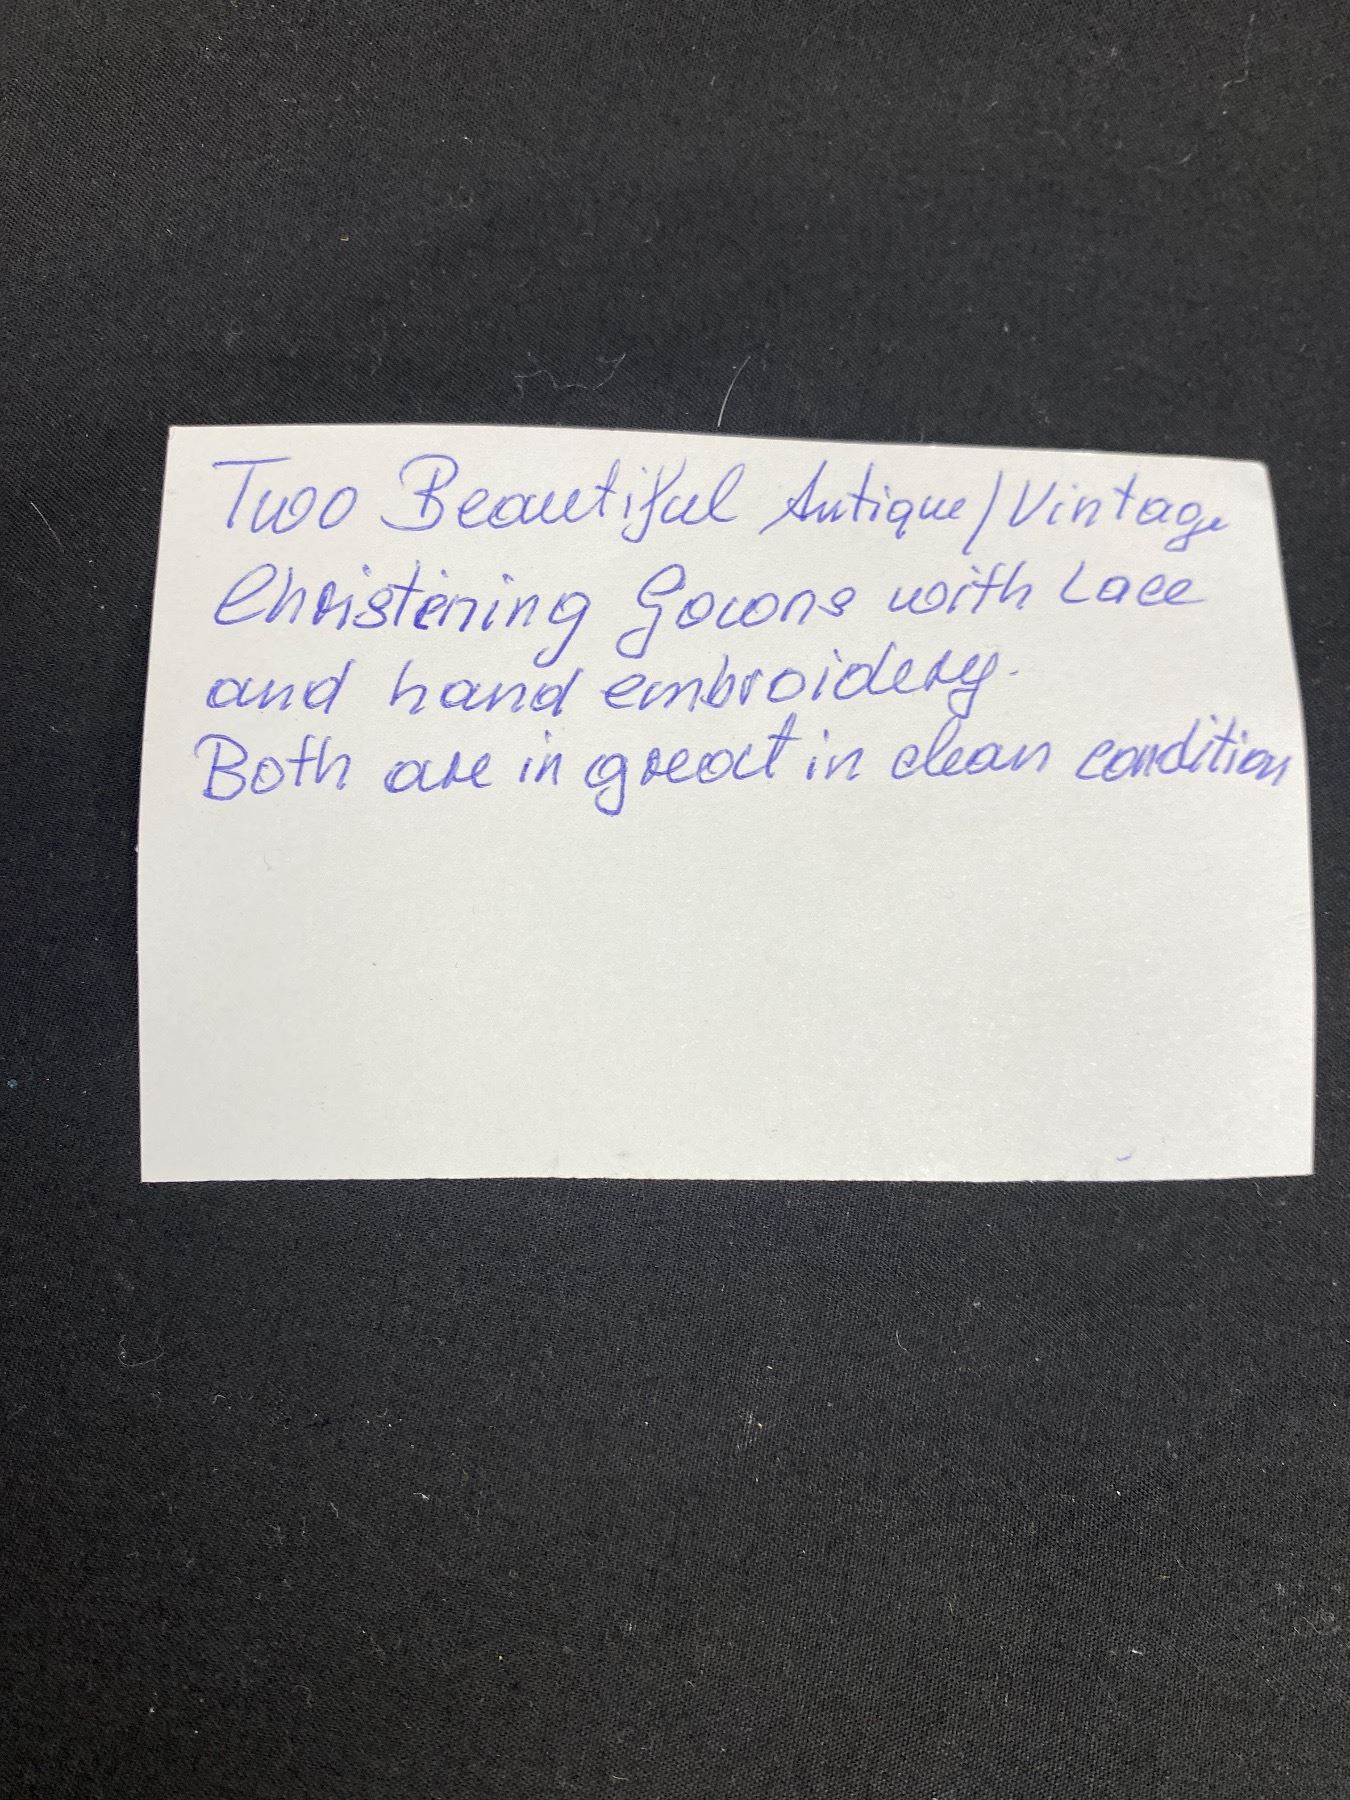 Two Beautiful Antique/Vintage
Christening Gowns with Lace
and hand embroidery.
Both are in great in clean condition